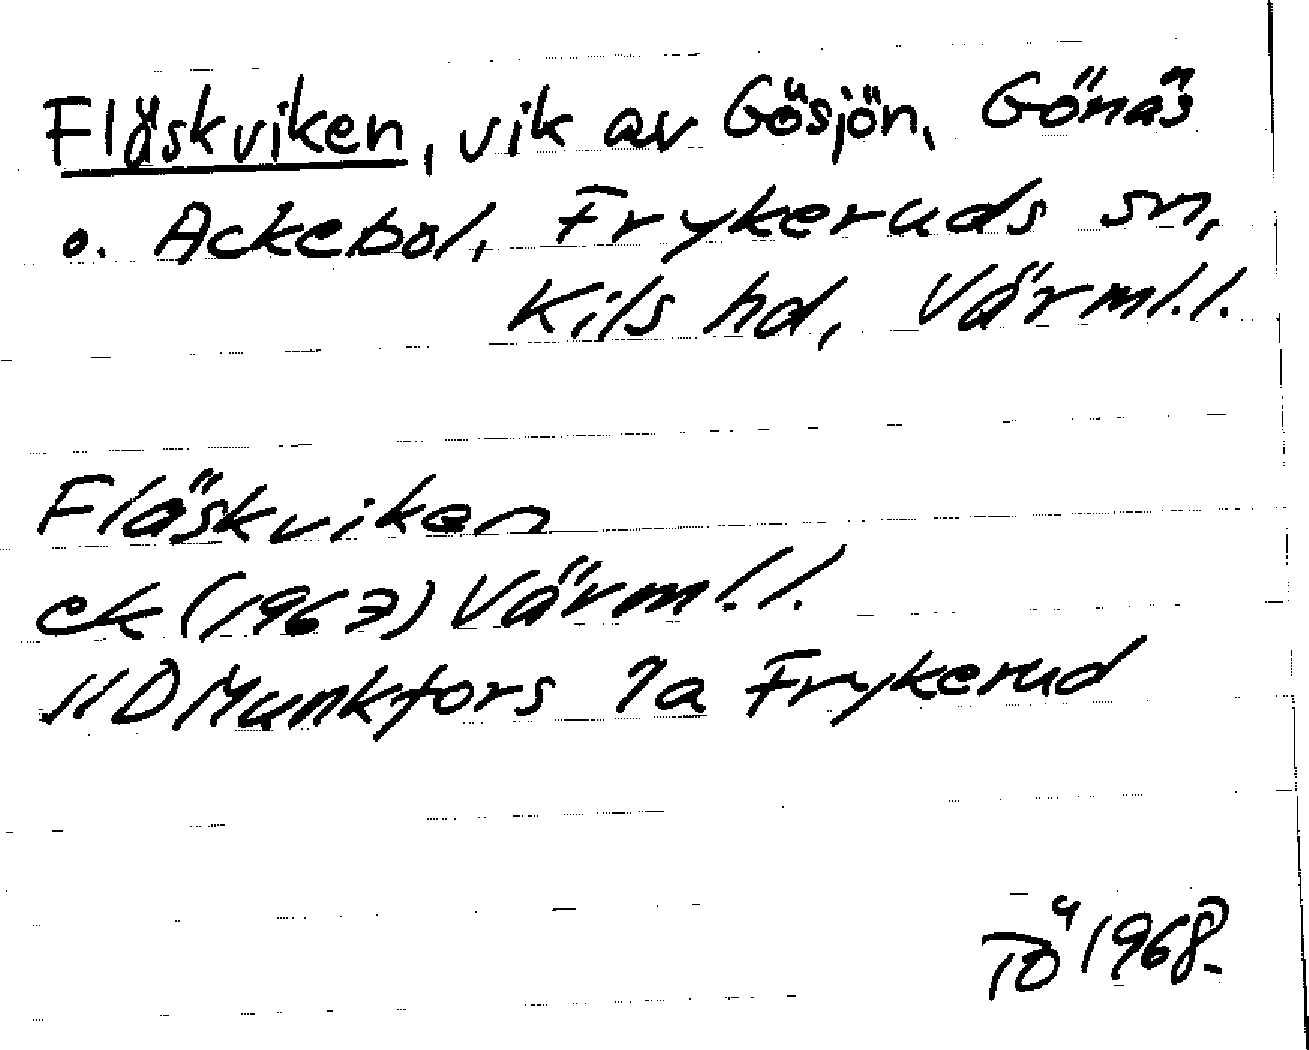 Fläskviken, vik av Gösjön, Gönäs
o. Ackebol, Frykeruds sn,
Kils hd, Värml.l.
Fläskviken
ek (1967) Värml.l.
11D Munkfors 7a Frykerud
TÖ 1968.